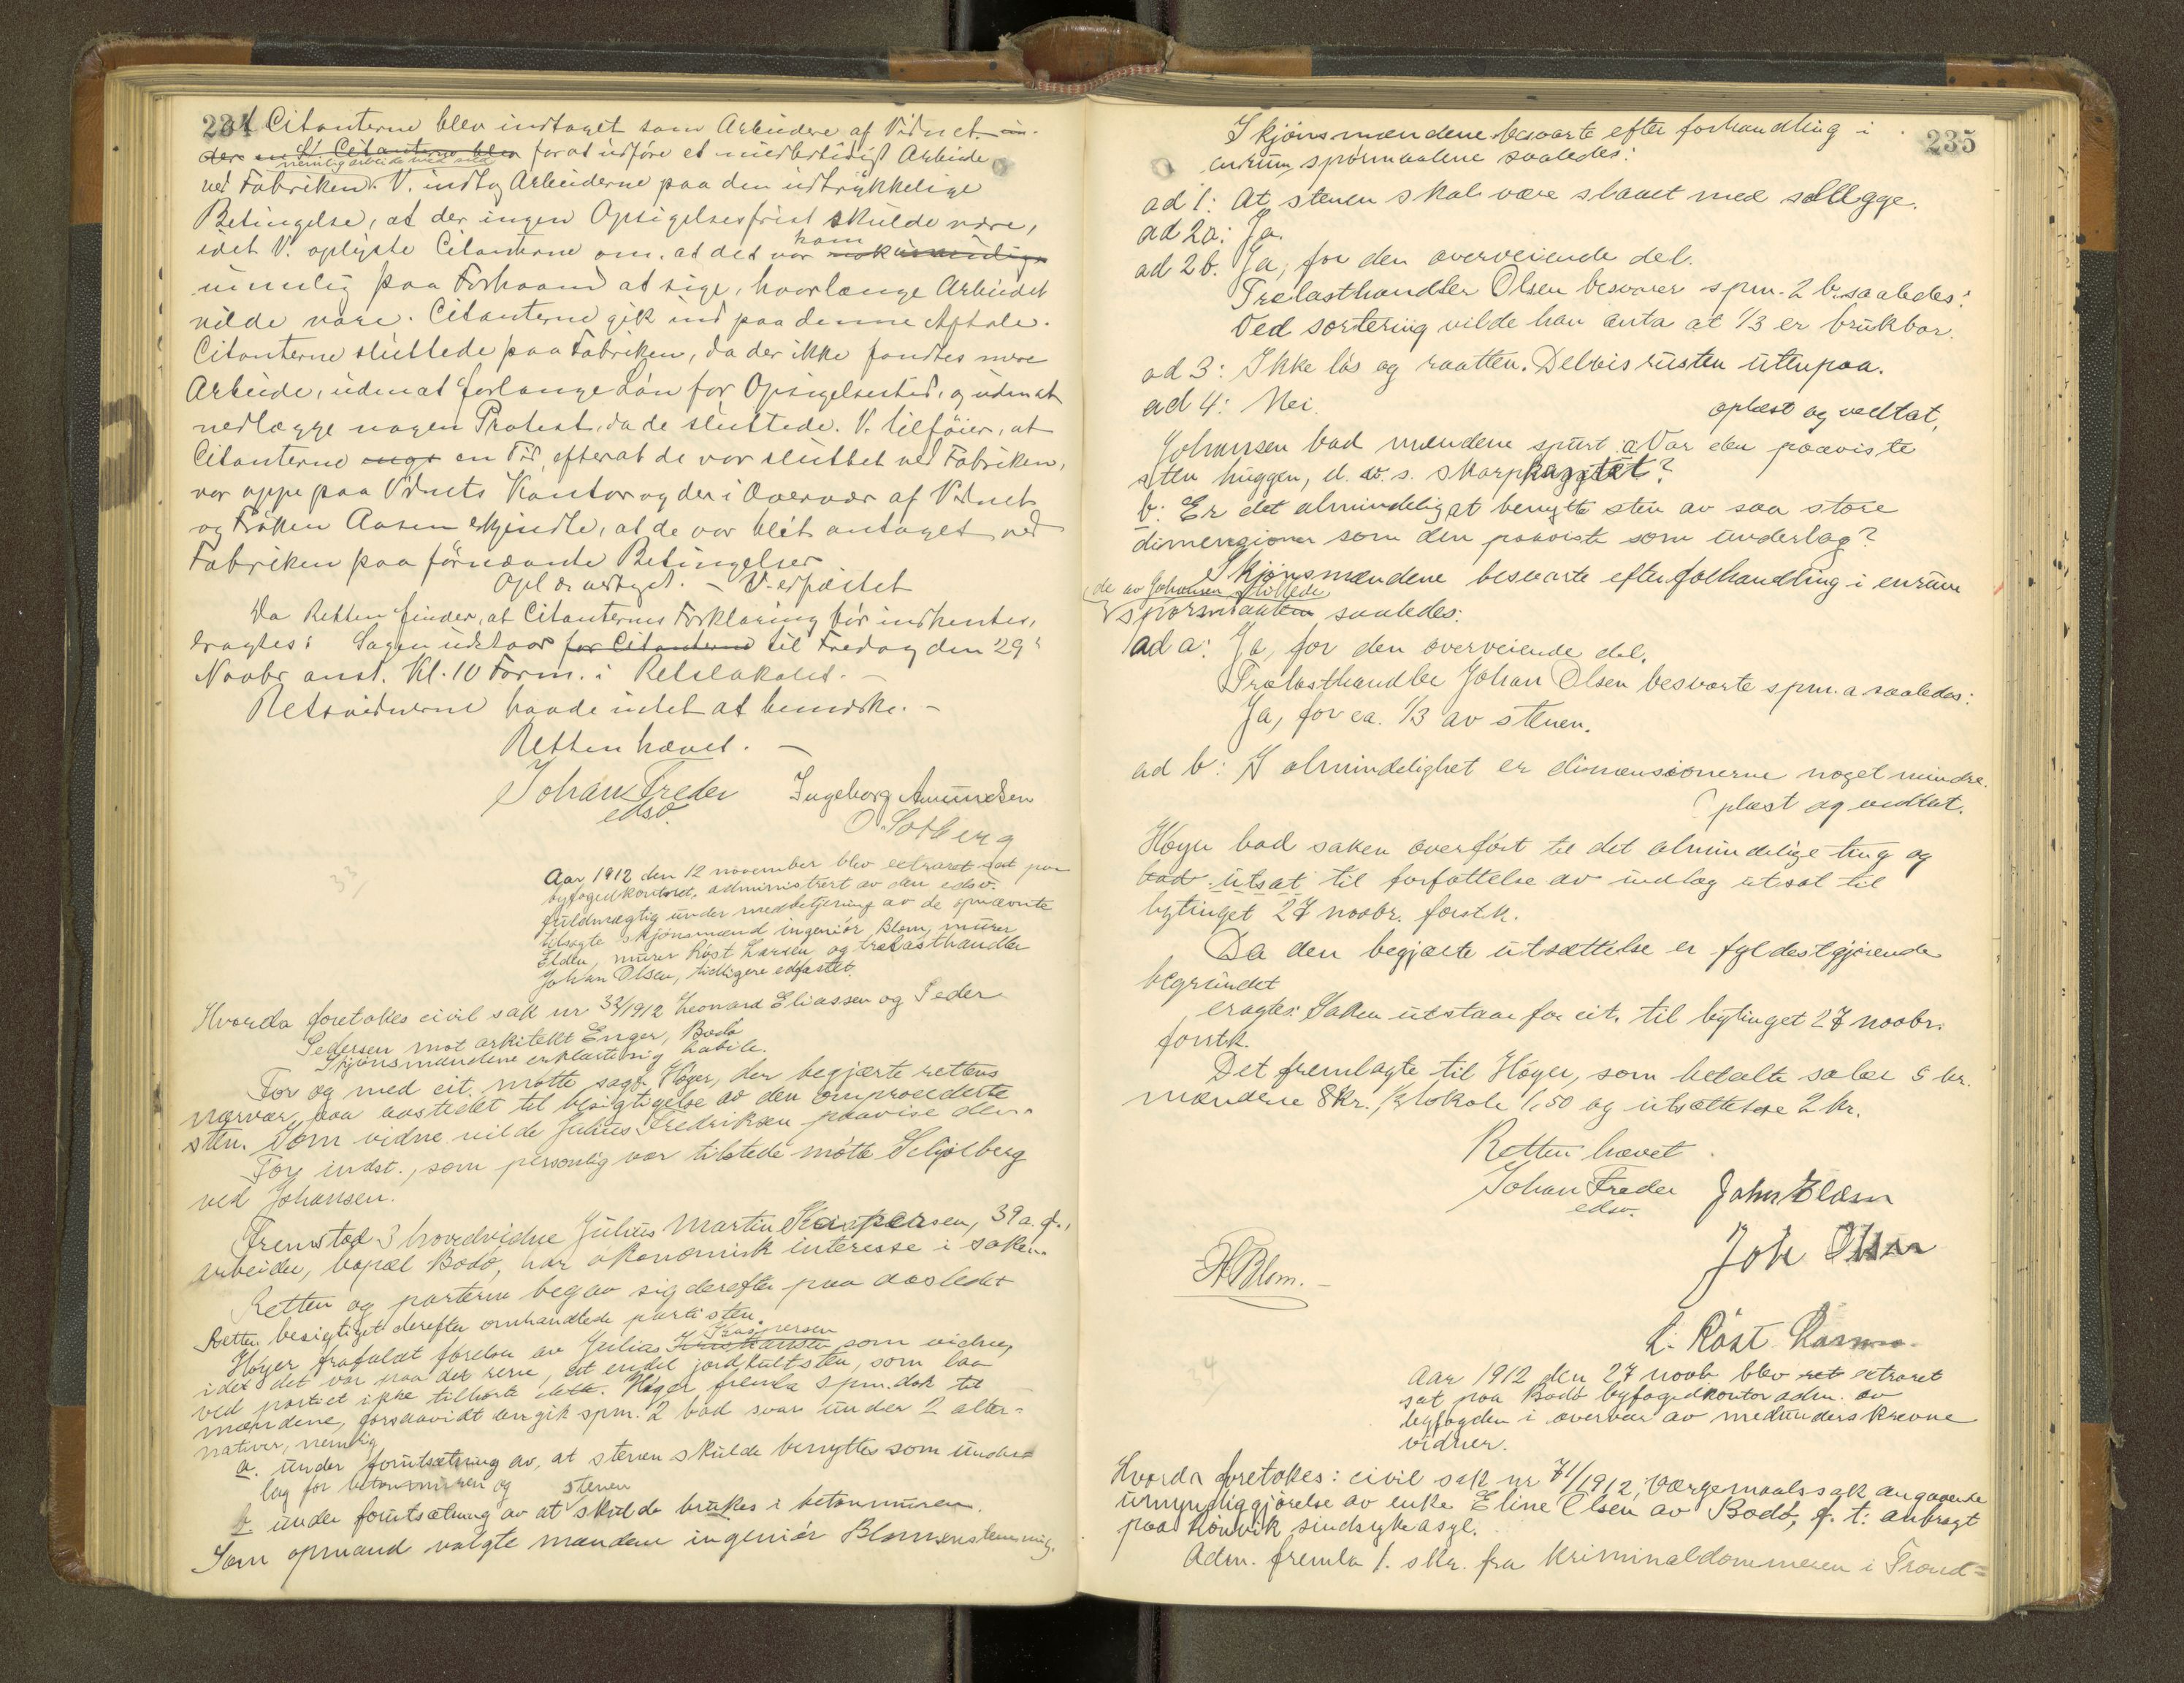 234
at Citanterne blev indtaget som Arbeidere af Vidnet in-
dere en St Citanterne blev for at udføre et midlertidigt Arbeide
nemlig arbeide med sild
ved Fabriken. V. indtog Arbeiderne paa den udtrykkelige
Betingelse, at der ingen Opsigelsesfrist skulde være,
idet V. oplyste Citanterne om, at det var ham
umulig paa Forhaand at sige, hvorlænge Arbeidet
vilde vare. Citanterne gik ind paa denne Aftale.
Citanterne sluttede paa Fabriken, da der ikke fandtes mere
Arbeide, uden at forlange Løn for Opsigelsestid, og uden at
nedlægge nogen Protest, da de sluttede. V. tilføier, at
Citanterne engs en Tid, efterat de var sluttet ved Fabriken,
var oppe paa Vidnets Kontor og der i Overvær af Vidnet
og Frøken Aasen erkjendte, at de var blet antaget ved
Fabriken paa førnævnte Betingelser
Opl. & vedtaget. – V. edfæstet
Da Retten finder, at Citanternes Forklaring bør indhentes,
eragtes: Sagen udstaar for Citanterne til Fredag den 29'
Novbr. anst. Kl. 10 Form. i Retslokalet. –
Retsvidnerne havde intet at bemærke. –
Retten hævet. –
Johan Freder Ingeborg Amundsen
edsv. O. Solberg
33/
Aar 1912 den 12 november blev extraret sat paa
byfogedkontoret, administrert av den edsv.
fuldmægtig under medbetjening av de opnævnte
tilsagte skjønsmænd ingeniør Blom, murer
Elden, murer Røst Larsen og trælasthandler
Johan Olsen, tidligere edfæstet.
Hvorda foretokes civil sak nr 32/1912 Leonard Eliassen og Peder
Pedersen mot arkitekt Enger, Bodø
Skjønsmændene erklærte sig habile.
For og med cit. møtte sagf. Høyer, der begjærte rettens
nærvær paa aastedet til besigtigelse av den omprocederte
sten. Som vidne vilde Julius Fredriksen paavise den.
For indst., som personlig var tilstede møtte Schjølberg
ved Johansen.
Fremstod 3 hovedvidne Julius Martin Kaspersen, 39 a. g.,
arbeider, bopæl Bodø, har økonomisk interesse i saken.
Retten og parterne begav sig derefter paa aastedet
Retten besigtiget derefter omhandlede parti sten.
Kaspersen
Høyer frafaldt førelsen av Julius Kristiansen som vidne,
idet det var paa det rene, at endel jordkultsten, som laa
ved partiet ikke tilhørte dette. Høyer fremla spm. dok til
mændene, forsaavidt angik spm. 2 bad svar under 2 alter-
nativer, nemlig
a. under forutsætning av, at stenen skulde benyttes som under-
lag for betonmuren og
stenen
b. under forutsætning av at skulde brukes i betonmuren.
Som opmand valgte mændene ingeniør Blom enstemmig.
235
Skjønsmændene besvarte efter forhandling i
enrum spørmaalene saaledes:
ad 1: At stenen skal være slaaet med slægge.
ad 2a: Ja.
ad 2b. Ja, for den overveiende del.
Trelasthandler Olsen besvarer spm. 2 b. saaledes:
Ved sortering vilde han anta at 1/3 er brukbar.
ad 3: Ikke løs og raatten. Delvis rusten utenpaa.
ad 4: Nei.
oplæst og vedtat,
Johansen bad mændene spurt a Var den paaviste
sten huggen, d. v. s. skarpkantet?
b: Er det almindelig at benytte sten av saa store
dimensioner som den paaviste som underlag?
Skjønsmændene besvarte efter forhandling i enrum
de av Johansen stillede
spørsmaalene saaledes:
ad a: Ja, for den overveiende del.
Trælasthandler Johan Olsen besvarte spm. a saaledes:
Ja, for ca. 1/3 av stenen.
ad b: I almindelighet er dimensionerne noget mindre.
Oplæst og vedtat.
Høyer bad saken overført til det almindelige ting og
bad utsat til forfattelse av indlæg utsat til
bytinget 27 novbr. førstk.
Da den begjærte utsættelse er fyldestgjørende
begrundet
eragtes: Saken utstaar for cit. til bytinget 27 novbr.
førstk.
Det fremlagte til Høyer, som betalte salær 5 kr.
mændene 8 kr. 1/2 lokale 1,50 og utsættelse 2 kr.
Retten hævet.
Johan Freder John Elden
edsv.
Joh Olsen
H Blom. –
L. Røst Larsen
34
Aar 1912 den 27 novb. blev ret extraret
sat paa Bodø byfogedkontor adm. av
byfogden i overvær av medunderskrevne
vidner.
Hvorda foretokes: civil sak nr 71/1912, værgemaalssak angaaende
umyndiggjørelse av enke Eline Olsen av Bodø, f. t. anbragt
paa Rønvik sindsykeasyl.
Adm. fremla 1. skr. fra kriminaldommeren i Trond=